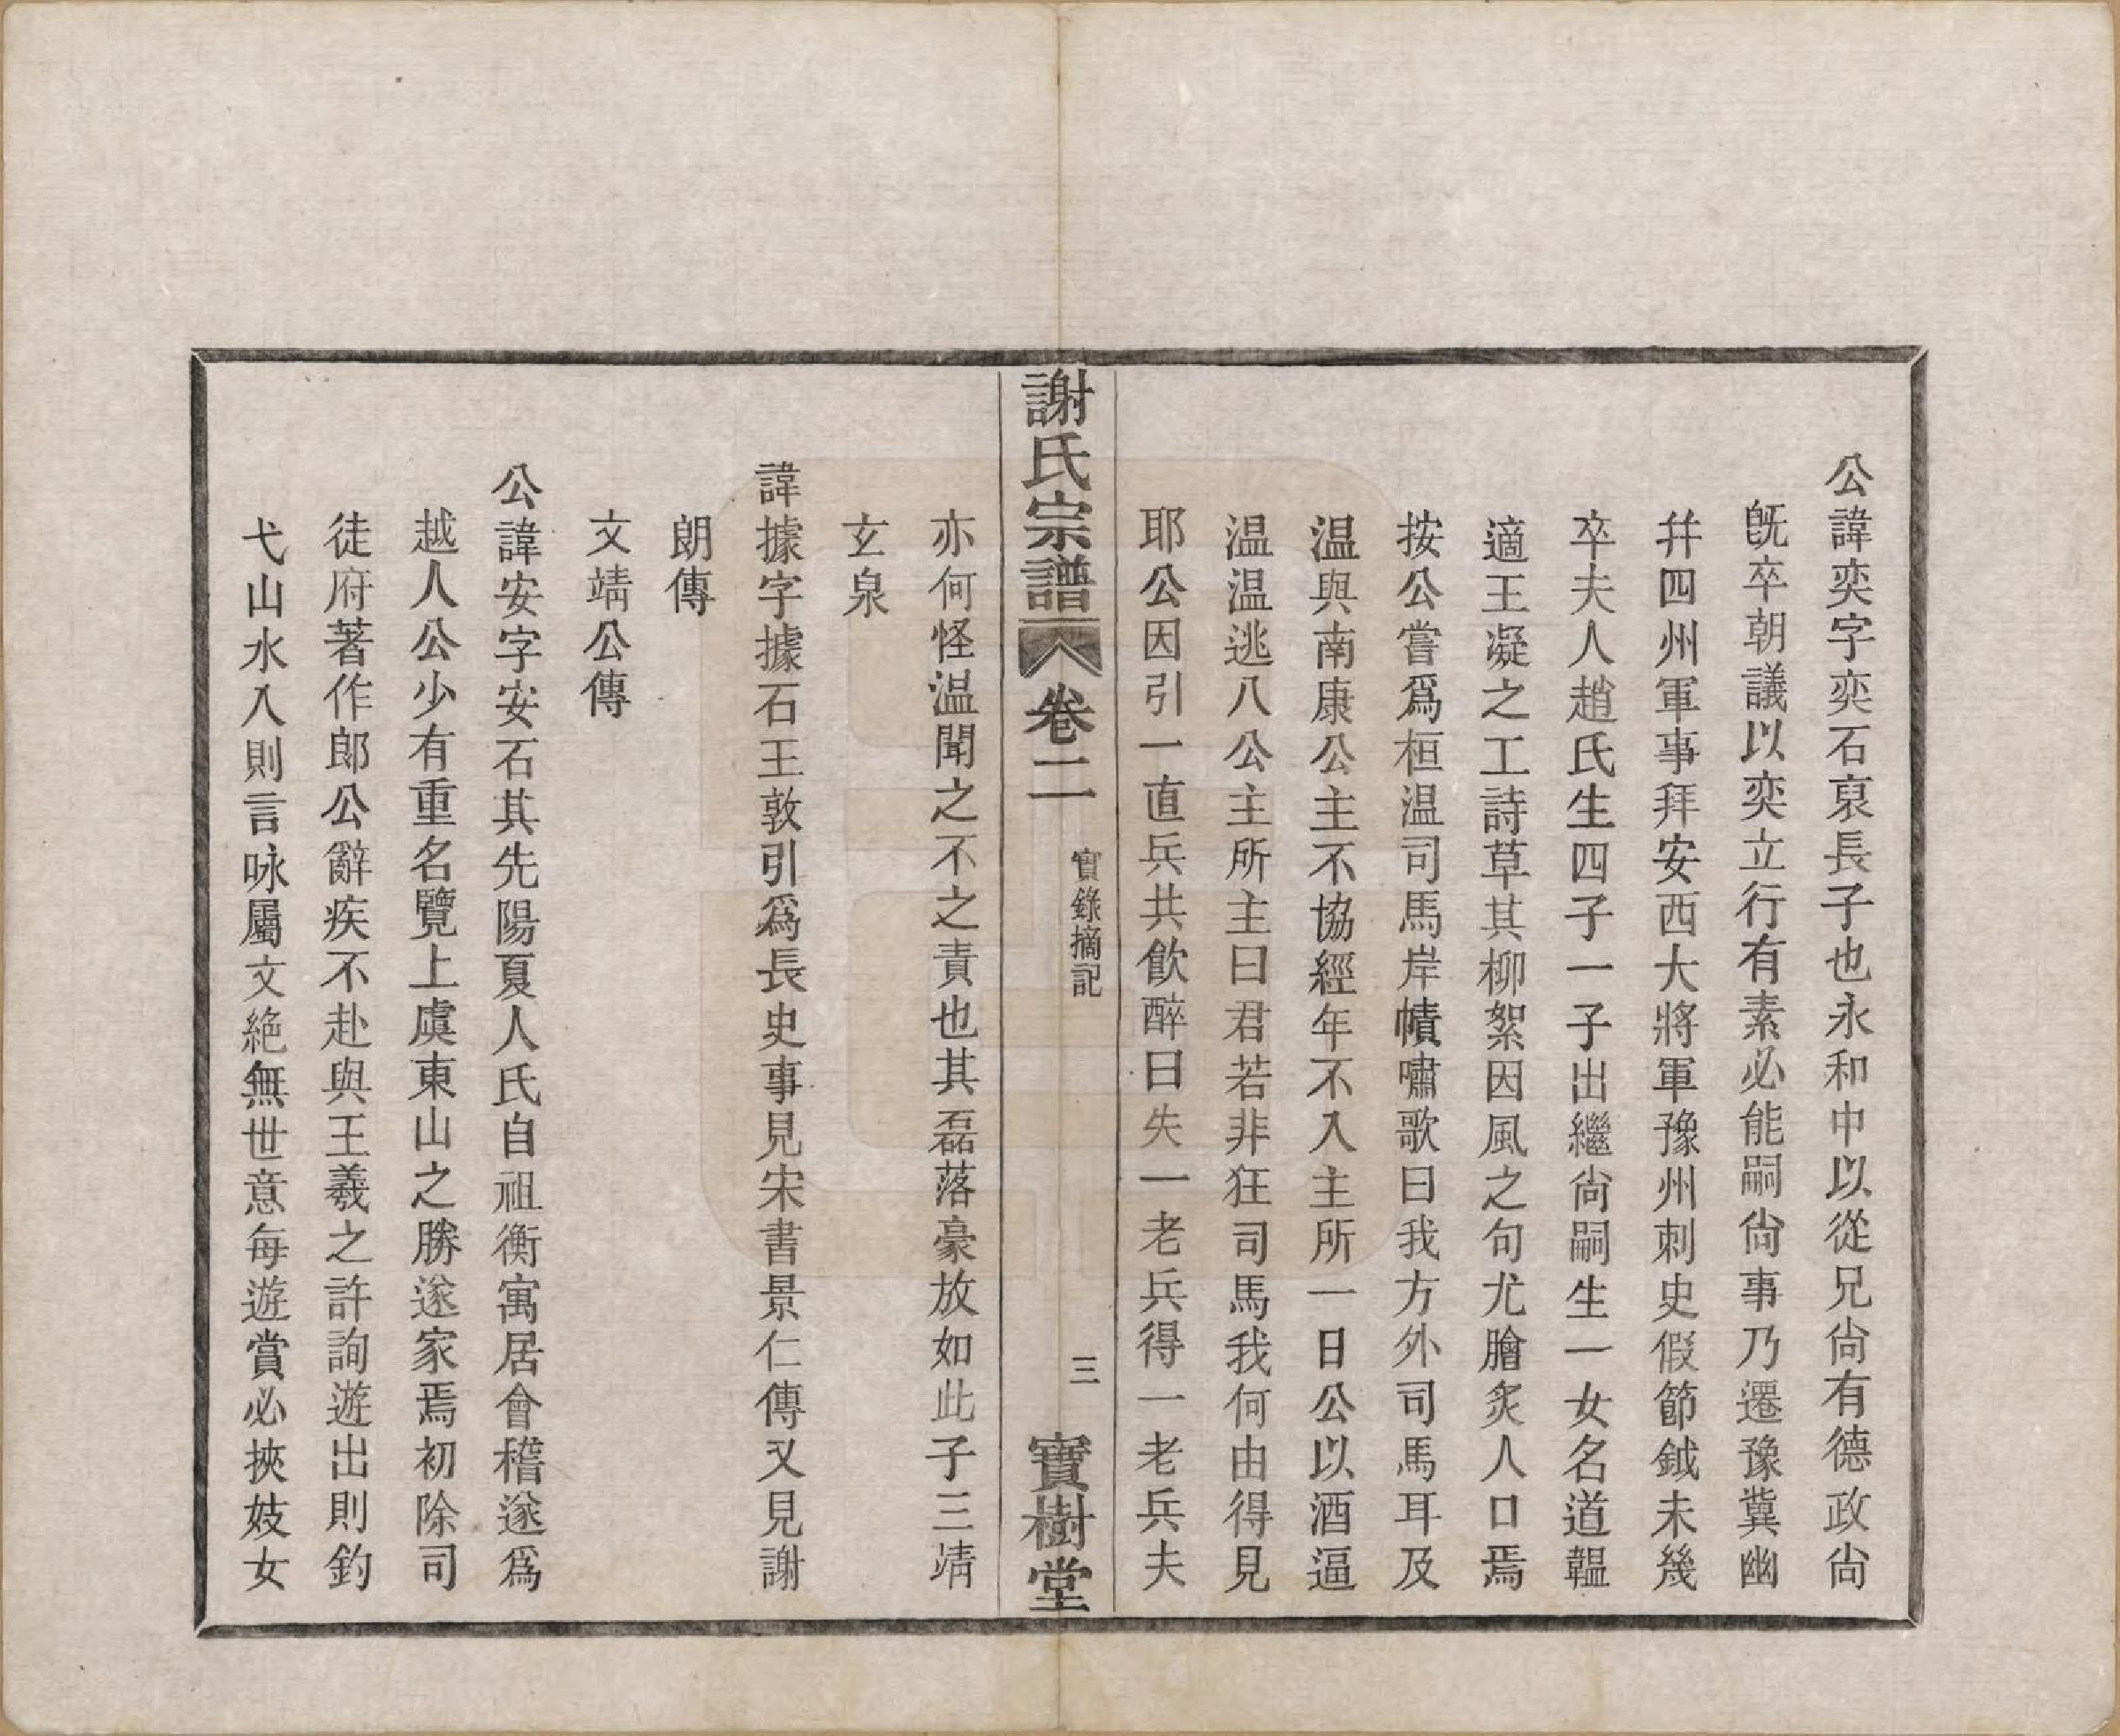 公諱奕字奕石裒長子也永和中以從兄尙有德政尙
旣卒朝議以奕立行有素必能嗣尙事乃遷豫冀幽
幷四州軍事拜安西大將軍豫州刺史假節鉞未幾
卒夫人趙氏生四子一子出繼尙嗣生一女名道韞
適王凝之工詩草其柳絮因風之句尤膾炙人口焉
按公嘗爲桓温司馬岸幘嘯歌曰我方外司馬耳及
温與南康公主不協經年不入主所一日公以酒逼
温温逃八公主所主曰君若非狂司馬我何由得見
耶公因引一直兵共飮醉曰失一老兵得一老兵夫
謝氏宗譜 卷二 實錄摘記 三 寶樹堂
亦何怪温聞之不之責也其磊落豪放如此子三靖
玄泉
諱據字據石王敦引爲長史事見宋書景仁傳又見謝
朗傳
文靖公傳
公諱安字安石其先陽夏人氏自祖衡寓居會稽遂爲
越人公少有重名覽上虞東山之勝遂家焉初除司
徒府著作郎公辭疾不赴與王羲之許詢遊出則釣
弋山水入則言咏屬文絶無世意每遊賞必挾妓女